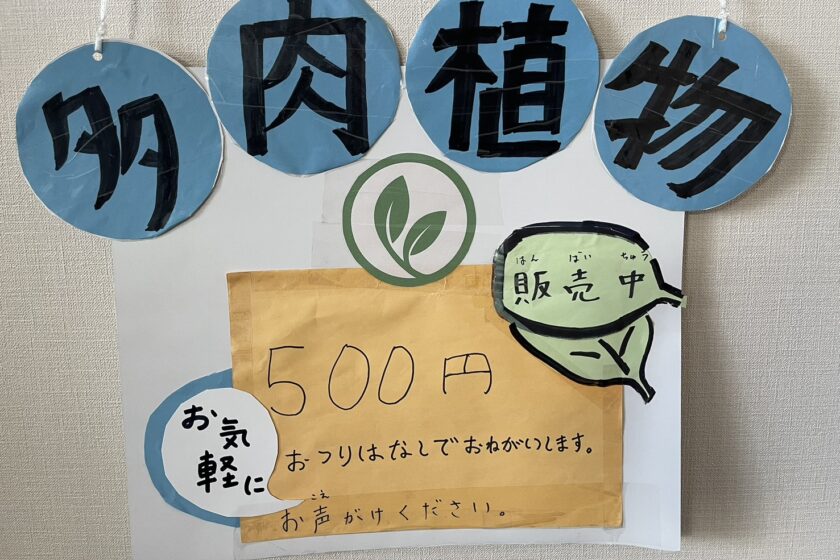 多肉植物
はんばいちゅう
販売中
500円
おつりはなしでおねがいします。
お気
軽に
こえ
お声がけください。